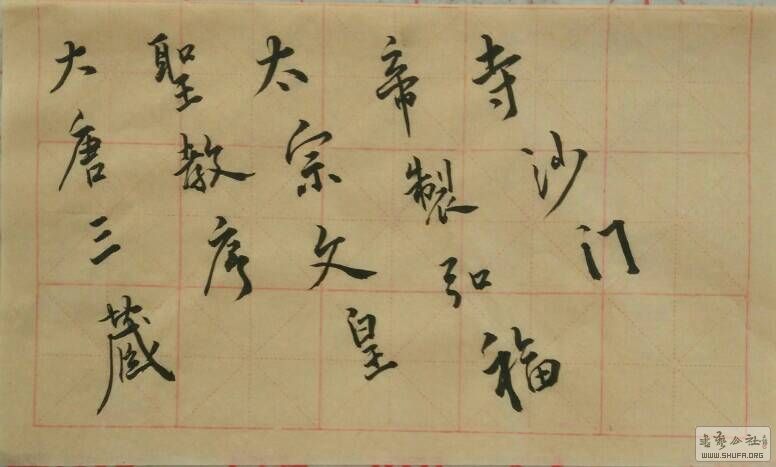 大唐三藏
聖教序
太宗文皇
帝製弘福
寺沙门
書藝公社
WWW.SHUFA.ORG